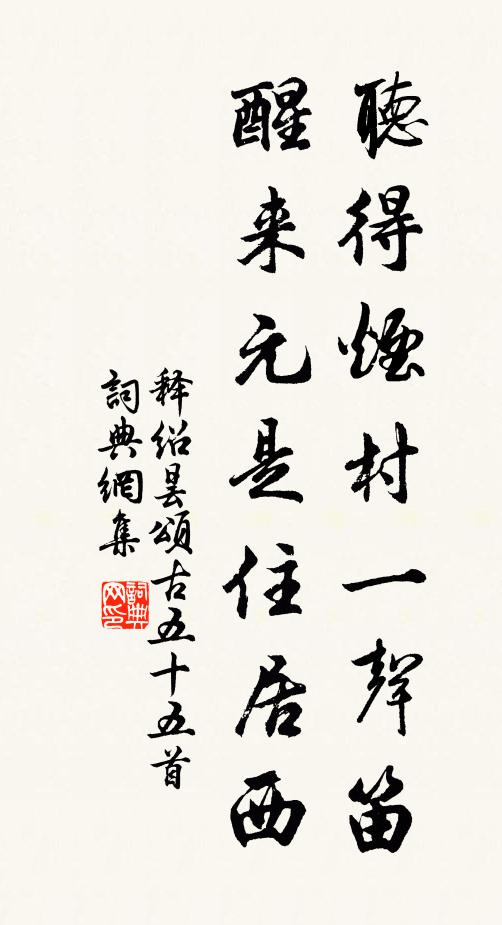 聽得煙村一聲笛
醒来元是住居西
释紹曇頌古五十五首
詞典網集
詞典网印